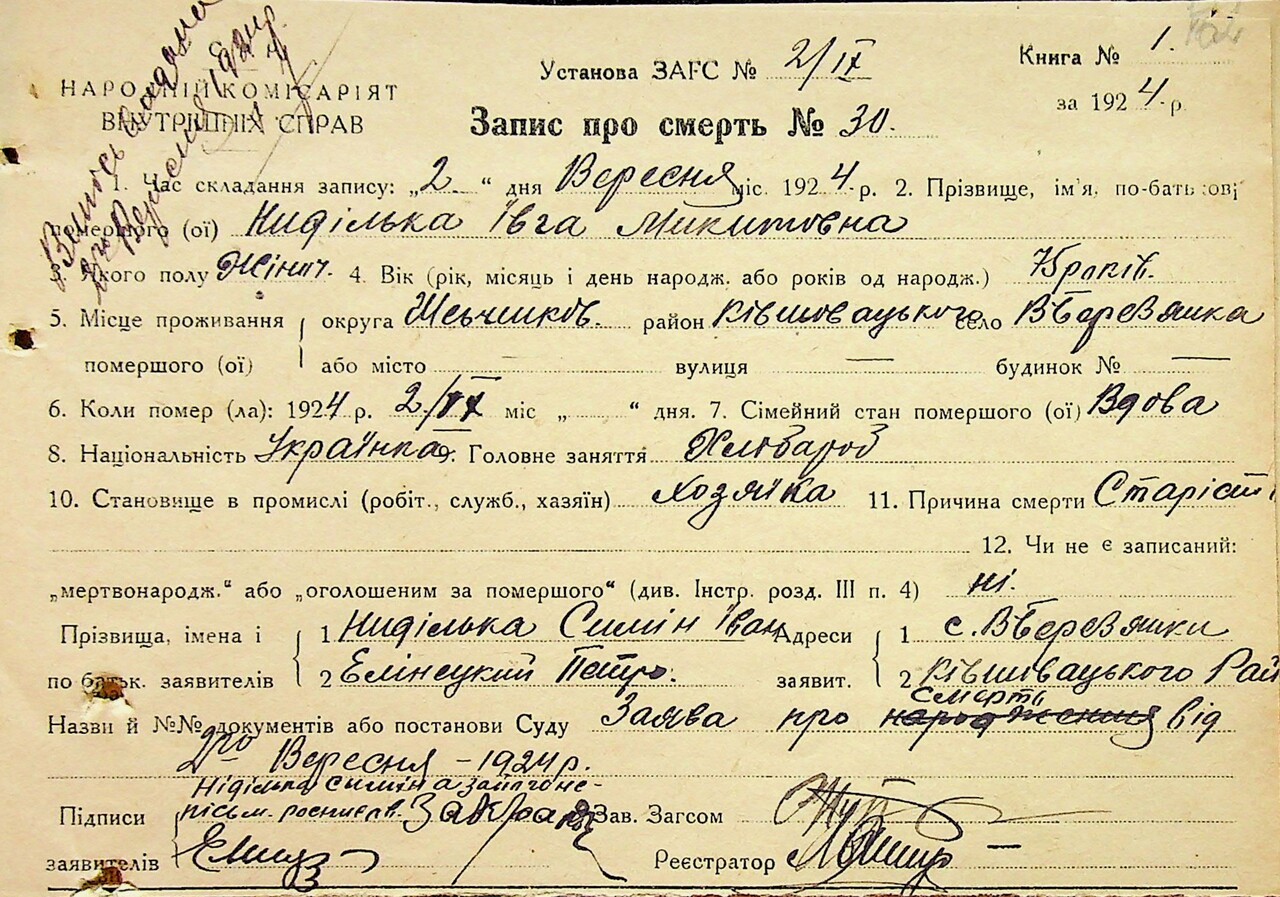 Установа ЗАГС № 2/IX Книга № 1.
НАРОДНІЙ КОМІСАРІЯТ за 1924 р.
ВНУТРІШНІХ СПРАВ Запис про смерть № 30.
1. Час складання запису: „2 “ дня Вересня міс. 1924 р. 2. Прізвище, ім'я, по-батькові
помершого (ої) Ниділька Ївга Микитовна
3. Якого полу Жіноч. 4. Вік (рік, місяць і день народж. або років од народж.) 75 років.
5. Місце проживання округа район Ківшовацького село В Березянка
помершого (ої) або місто — вулиця — будинок № —
6. Коли помер (ла): 1924 р. 2/IX міс „ “ дня. 7. Сімейний стан помершого (ої) Вдова
8. Національність Українка 9. Головне заняття Хлібороб
10. Становище в промислі (робіт., служб., хазяїн) Хозяйка 11. Причина смерти Старість
12. Чи не є записаний:
„мертвонародж.“ або „оголошеним за помершого“ (див. Інстр. розд. III п. 4) ні.
Прізвища, імена і 1 Ниділька Симін Іван Адреси 1 с. В Березянки
по батьк. заявителів 2 Елінецкий Петро. заявит. 2 Ківшивацького Рай
Назви й №№ документів або постанови Суду Заява про народження смерть від
2го Вересня – 1924 р.
Ніділька Симін а за його не-
Підписи письм. Зав. Загсом
заявителів Реєстратор